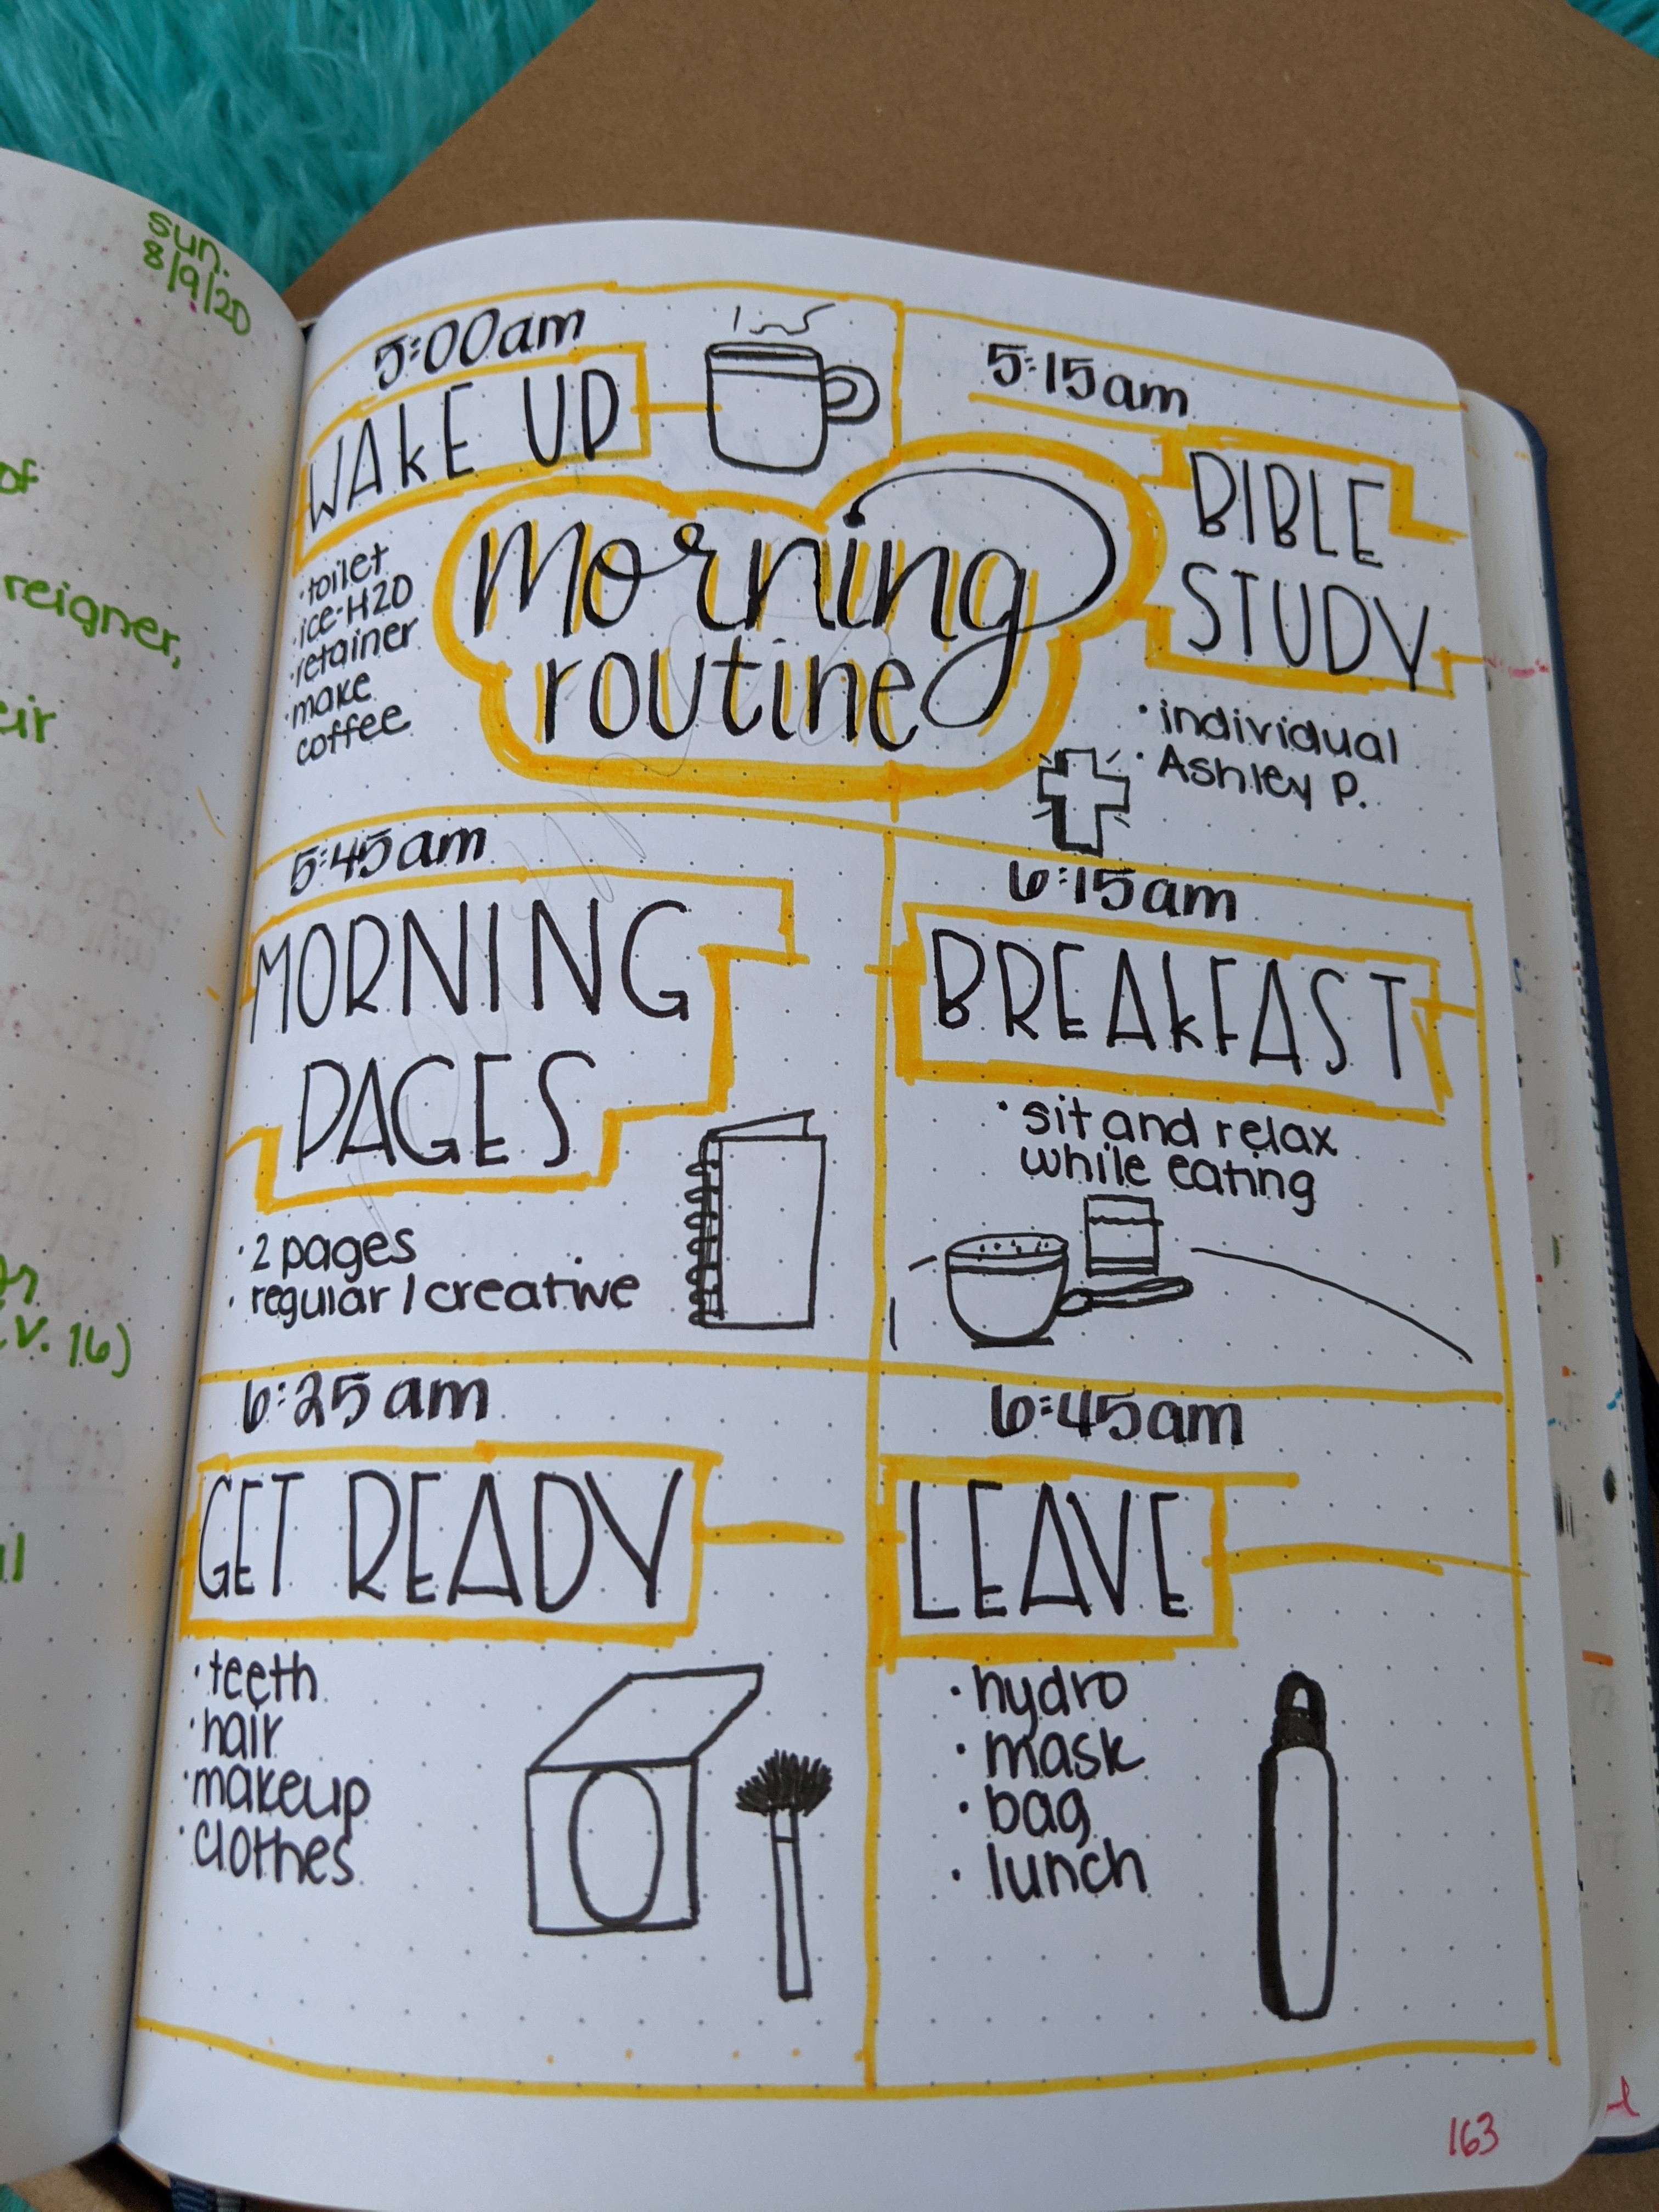 sun.
8/9/20
of
reigner,
eir
v. 16)
5:00am
WAKE UP
• toilet
• ice-H2O
• retainer
• make
coffee
morning
routine
5:15am
BIBLE
STUDY
• individual
• Ashley P.
5:45am
MORNING
PAGES
• 2 pages
• regular / creative
6:15am
BREAKFAST
• sit and relax
while eating
6:25am
GET READY
• teeth
• hair
• makeup
• clothes
6:45am
LEAVE
• hydro
• mask
• bag
• lunch
163